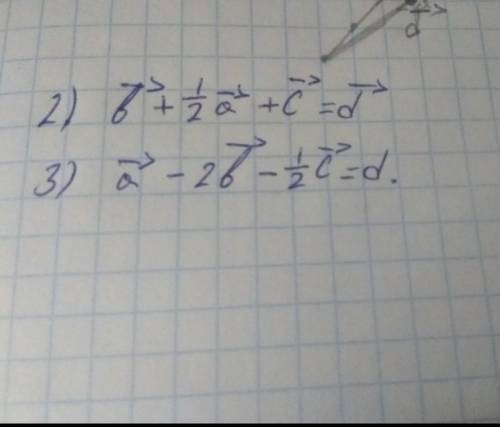 d⃗
2) b⃗ + 1/2 a⃗ + c⃗ = d⃗
3) a⃗ - 2b⃗ - 1/2 c⃗ = d.